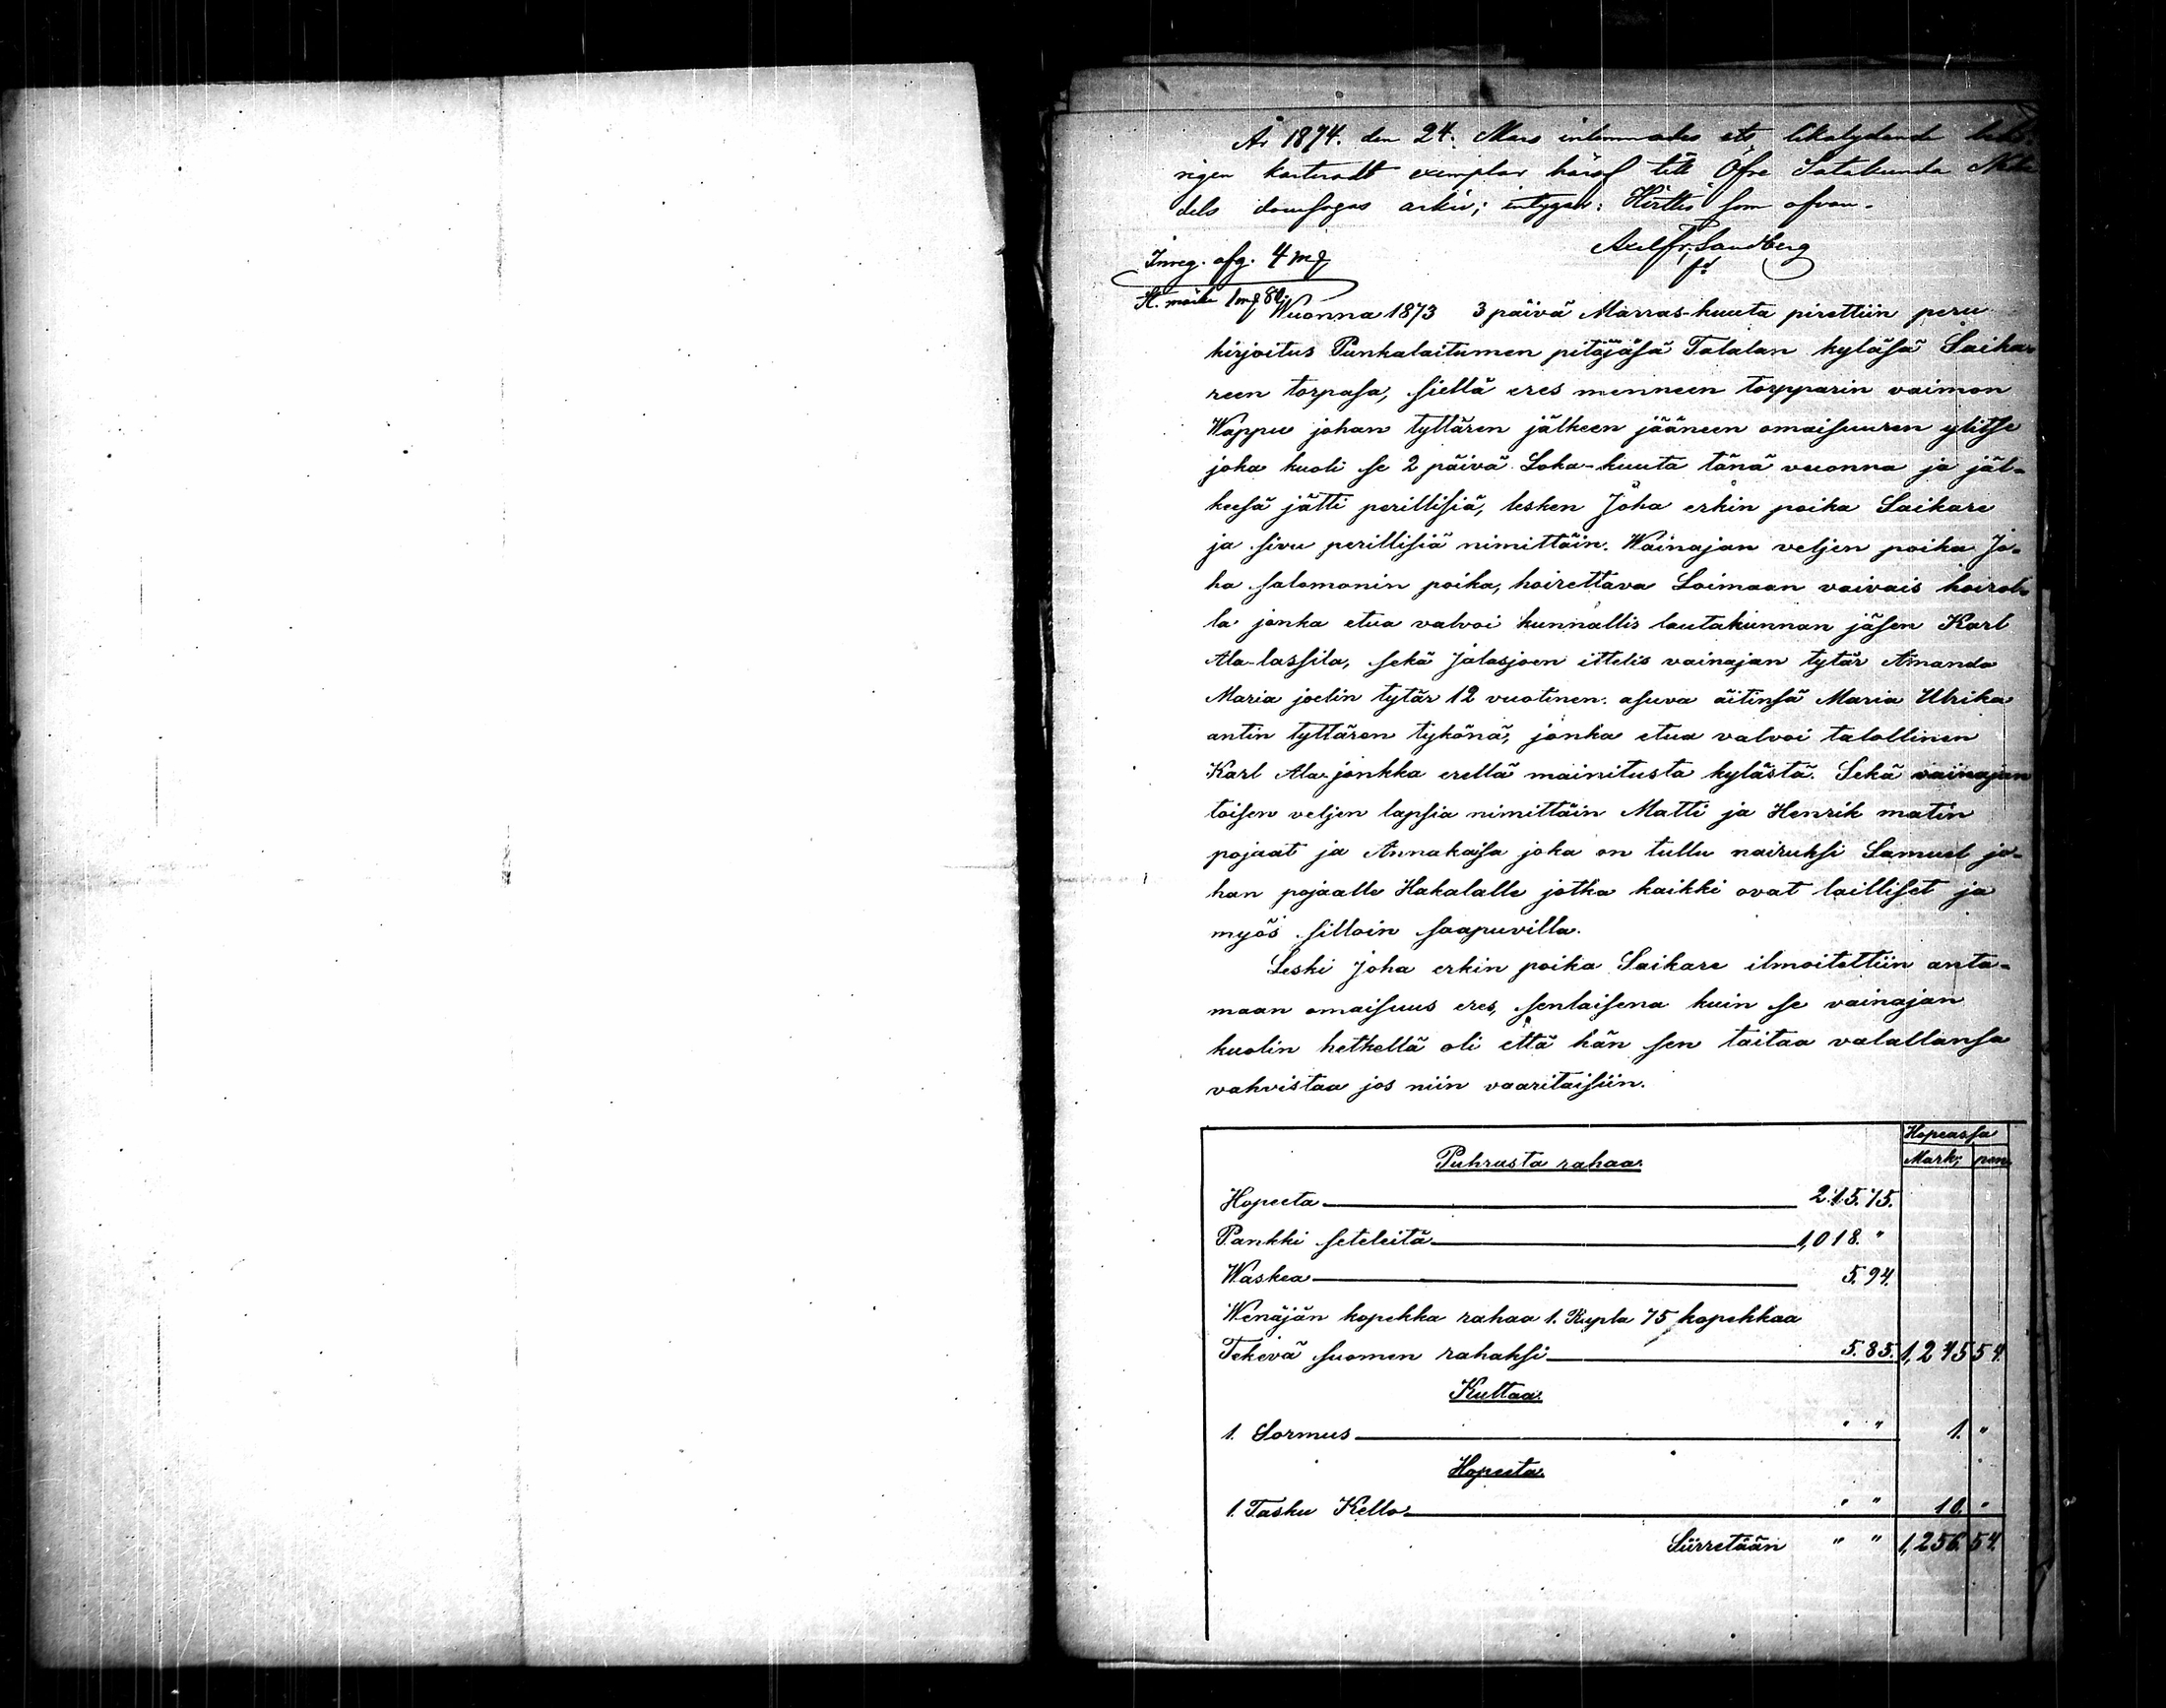 År 1874. den 24. Mars inlemnades ett likalydande
exemplar häraf till Öfre Satakunda
dels domsagas arkiv; intygar: Hirttis som ofvan.
Axel Fr. Sandberg
Inreg. afg. 4 mk
St. märke 1 mk 80.
Wuonna 1873 3 päivä Marras-kuuta pirettiin peru
kirjoitus Punkalaitumen pitäjäsä Talalan kyläsä Saika-
reen torpasa, siellä eres menneen torpparin vaimon
Wappu johan tyttären jälkeen jääneen omaisuuren ylitse
joka kuoli se 2 päivä Loka-kuuta tänä vuonna ja jäl-
keesä jätti perillisiä, lesken Joha erkin poika Saikare
ja sivu perillisiä nimittäin. Wainajan veljen poika Jo-
ha salomonin poika, hoirettava Loimaan vaivais hoirol-
la jonka etua valvoi kunnallis lautakunnan jäsen Karl
Ala-lassila, sekä Jalasjoen ittelis vainajan tytär Amanda
Maria joelin tytär 12 vuotinen. asuva äitinsä Maria Ulrika
antin tyttären tykönä, jonka etua valvoi talollinen
Karl Ala-jonkka erellä mainitusta kylästä. Sekä vainajan
toisen veljen lapsia nimittäin Matti ja Henrik matin
pojaat ja Annakaisa joka on tullu nairuksi Samuel jo-
han pojaalle Hakalalle jotka kaikki ovat lailliset ja
myös silloin saapuvilla.
Leski Joha erkin poika Saikare ilmoitettiin anta-
maan omaisuus eres, senlaisena kuin se vainajan
kuolin hetkellä oli että hän sen taitaa valallansa
vahvistaa jos niin vaaritaisiin.
Hopeassa
Puhrusta rahaa. Mark; pen
Hopeeta 215.75.
Pankki seteleitä 1,018. "
Waskea 5.94.
Wenäjän kopekka rahaa 1. Rupla 75 kopekkaa
Tekevä suomen rahaksi 5.85. 1,245 54.
Kultaa.
1. Sormus " " 1. "
Hopeeta.
1. Tasku Kello " " 10. "
Siirretään " " 1,256. 54.